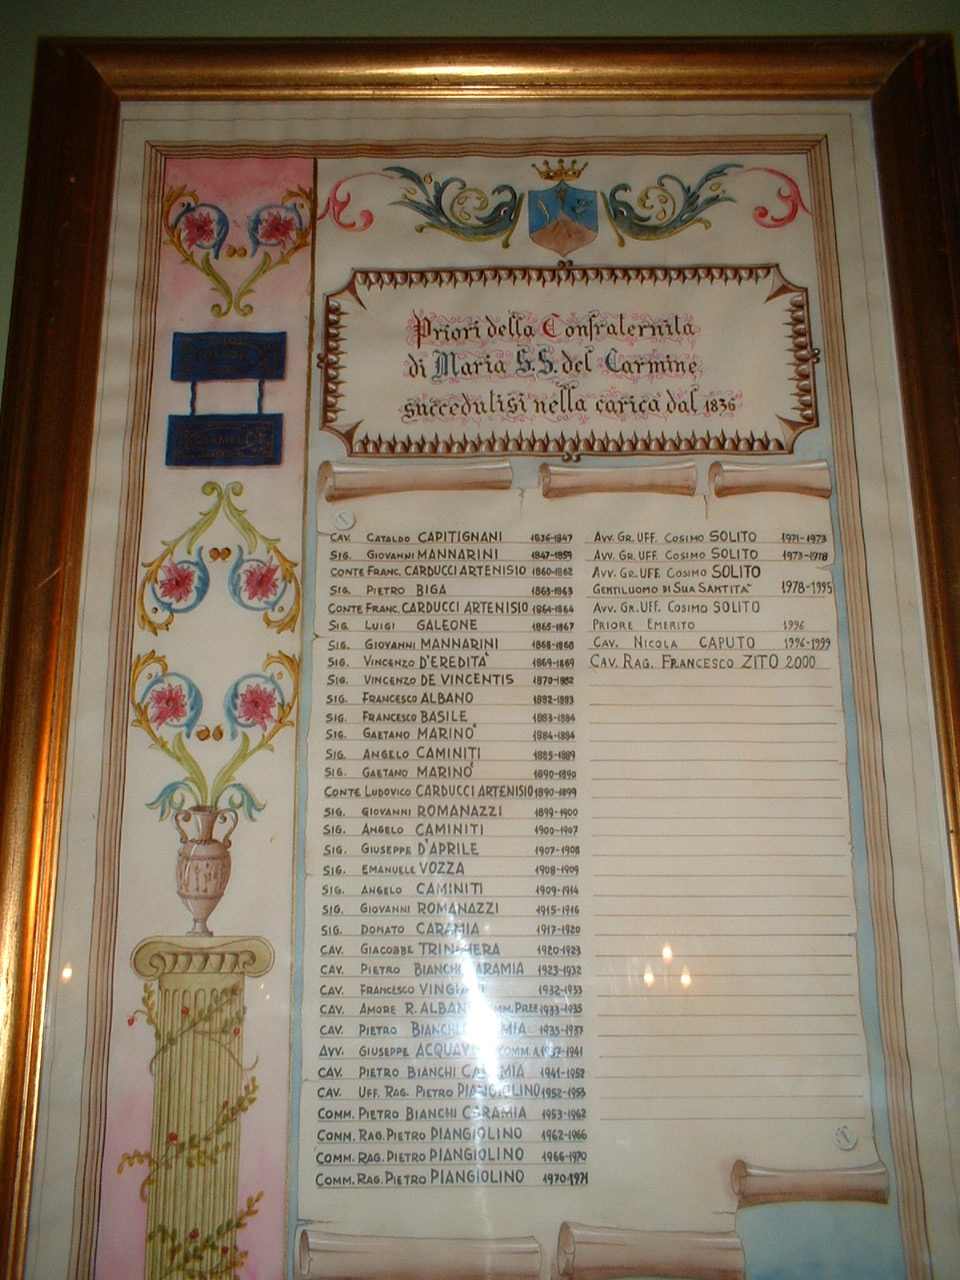 Priori della Confraternita
di Maria S.S. del Carmine
succedutisi nella carica dal 1836
CAV. CATALDO CAPITIGNANI 1836-1847
SIG. GIOVANNI MANNARINI 1847-1859
CONTE FRANC. CARDUCCI ARTENISIO 1860-1862
SIG. PIETRO BIGA 1863-1863
CONTE FRANC. CARDUCCI ARTENISIO 1864-1864
SIG. LUIGI GALEONE 1865-1867
SIG. GIOVANNI MANNARINI 1868-1868
SIG. VINCENZO D'EREDITA' 1869-1869
SIG. VINCENZO DE VINCENTIS 1870-1882
SIG. FRANCESCO ALBANO 1882-1883
SIG. FRANCESCO BASILE 1883-1884
SIG. GAETANO MARINO' 1884-1884
SIG. ANGELO CAMINITI 1885-1889
SIG. GAETANO MARINO' 1890-1890
CONTE LUDOVICO CARDUCCI ARTENISIO 1890-1899
SIG. GIOVANNI ROMANAZZI 1899-1900
SIG. ANGELO CAMINITI 1900-1907
SIG. GIUSEPPE D'APRILE 1907-1908
SIG. EMANUELE VOZZA 1908-1909
SIG. ANGELO CAMINITI 1909-1914
SIG. GIOVANNI ROMANAZZI 1915-1916
SIG. DONATO CARAMIA 1917-1920
CAV. GIACOBBE TRINCHERA 1920-1923
CAV. PIETRO BIANCHI CARAMIA 1923-1932
CAV. FRANCESCO 1932-1933
CAV. AMORE R. 1933-1935
CAV. PIETRO BIANCHI CARAMIA 1935-1937
AVV. GIUSEPPE 1937-1941
CAV. PIETRO BIANCHI CARAMIA 1941-1952
CAV. UFF. RAG. PIETRO PIANGIOLINO 1952-1953
COMM. PIETRO BIANCHI CARAMIA 1953-1962
COMM. RAG. PIETRO PIANGIOLINO 1962-1966
COMM. RAG. PIETRO PIANGIOLINO 1966-1970
COMM. RAG. PIETRO PIANGIOLINO 1970-1971
AVV. GR. UFF. COSIMO SOLITO 1971-1973
AVV. GR. UFF. COSIMO SOLITO 1973-1978
AVV. GR. UFF. COSIMO SOLITO
GENTILUOMO DI SUA SANTITA' 1978-1995
AVV. GR. UFF. COSIMO SOLITO
PRIORE EMERITO 1996
CAV. NICOLA CAPUTO 1996-1999
CAV. RAG. FRANCESCO ZITO 2000